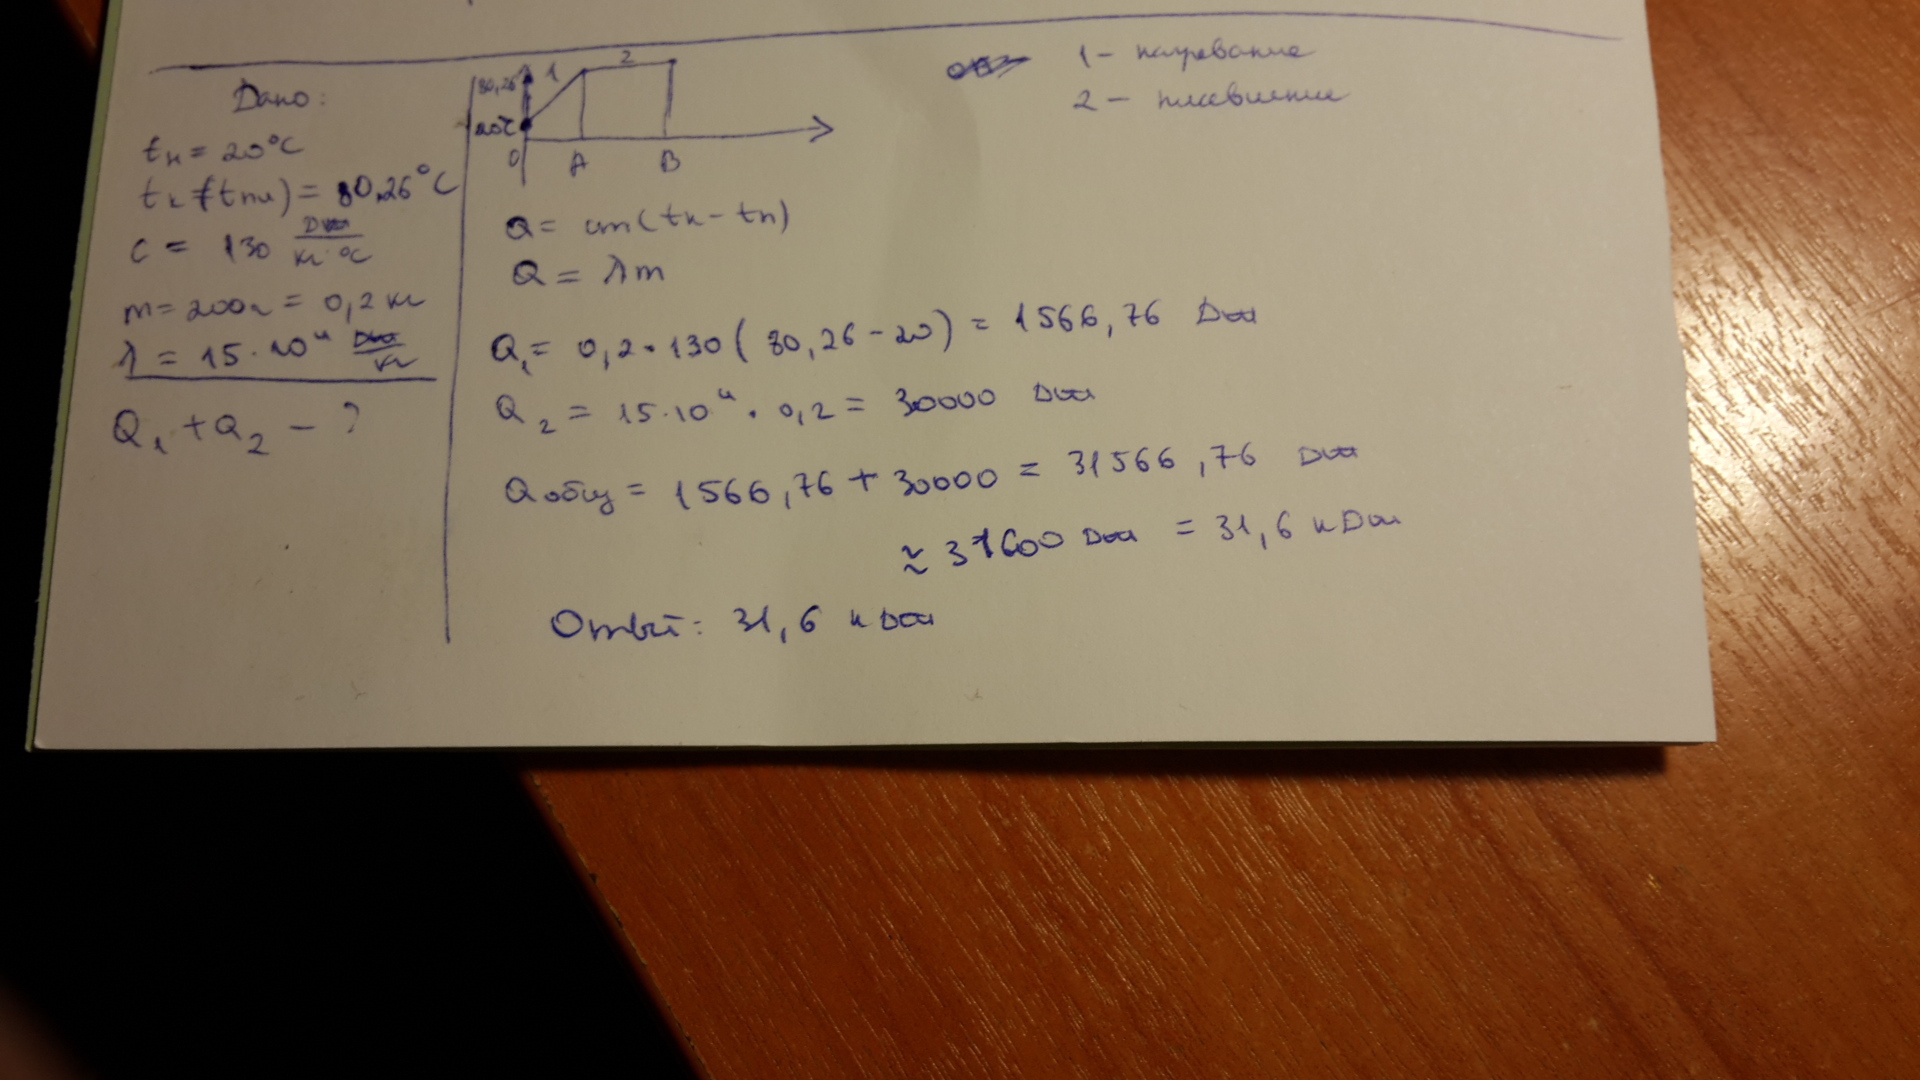 Дано:
tн = 20°C
tк (tпл) = 80,26°C
c = 130 Дж/кг·°C
m = 200г = 0,2 кг
λ = 15·10⁴ Дж/кг
Q₁ + Q₂ - ?
80,26
1
2
20°C
0
A
B
1 - нагревание
2 - плавление
Q = cm(tк - tн)
Q = λm
Q₁ = 0,2 · 130 ( 80,26 - 20) = 1566,76 Дж
Q₂ = 15·10⁴ · 0,2 = 30000 Дж
Qобщ = 1566,76 + 30000 = 31566,76 Дж
≈ 31600 Дж = 31,6 кДж
Ответ: 31,6 кДж